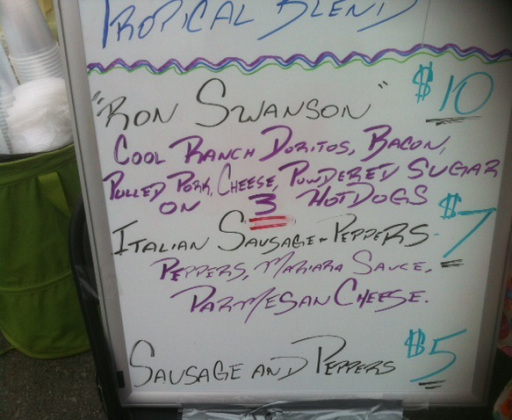 TROPICAL BLEND
"RON SWANSON" $10
COOL RANCH DORITOS, BACON,
PULLED PORK, CHEESE, POWDERED SUGAR
ON 3 HOTDOGS
ITALIAN SAUSAGE & PEPPERS $7
PEPPERS, MARIARA SAUCE,
PARMESAN CHEESE.
SAUSAGE AND PEPPERS $5